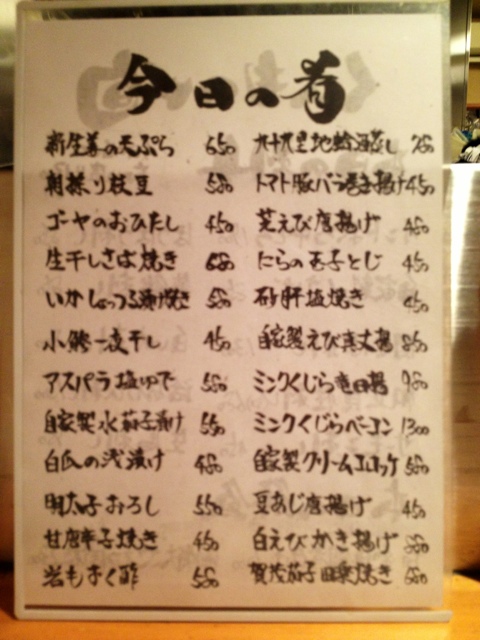 今日の肴
新生姜の天ぷら 650
朝採り枝豆 580
ゴーヤのおひたし 450
生干しさば焼き 680
いかしょっつる漬焼き 580
一夜干し 450
アスパラ塩ゆで 580
自家製水茄子漬け 550
白瓜の浅漬け 480
明太子おろし 550
甘唐辛子焼き 450
岩もずく酢 580
九十九里地蛤酒蒸し
トマト豚バラ巻き揚げ 450
芝えび唐揚げ 480
にらの玉子とじ 450
砂肝塩焼き 450
自家製えび真丈揚 850
ミンクくじら竜田揚 980
ミンクくじらベーコン 1300
自家製クリームコロッケ 580
豆あじ唐揚げ 450
白えびかき揚げ
賀茂茄子田楽焼き 680